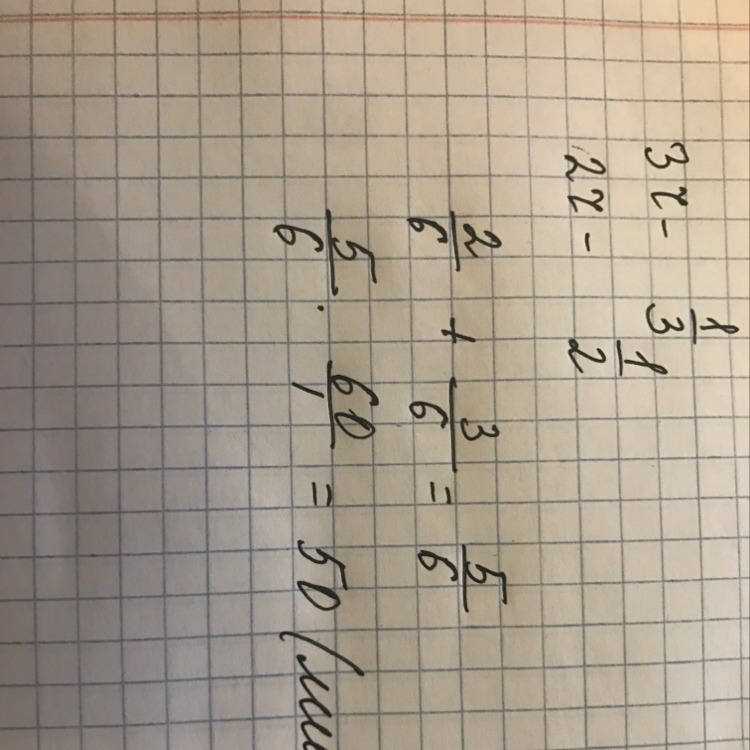 3ч - 1/3
2ч - 1/2
2/6 + 3/6 = 5/6
5/6 · 60/1 = 50 (мин